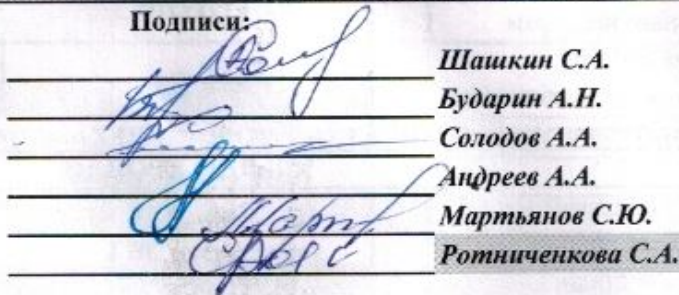 Подписи:
Шашкин С.А.
Бударин А.Н.
Солодов А.А.
Андреев А.А.
Мартьянов С.Ю.
Ротниченкова С.А.